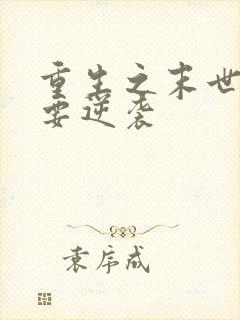 重生之末世
要逆袭
袁序成